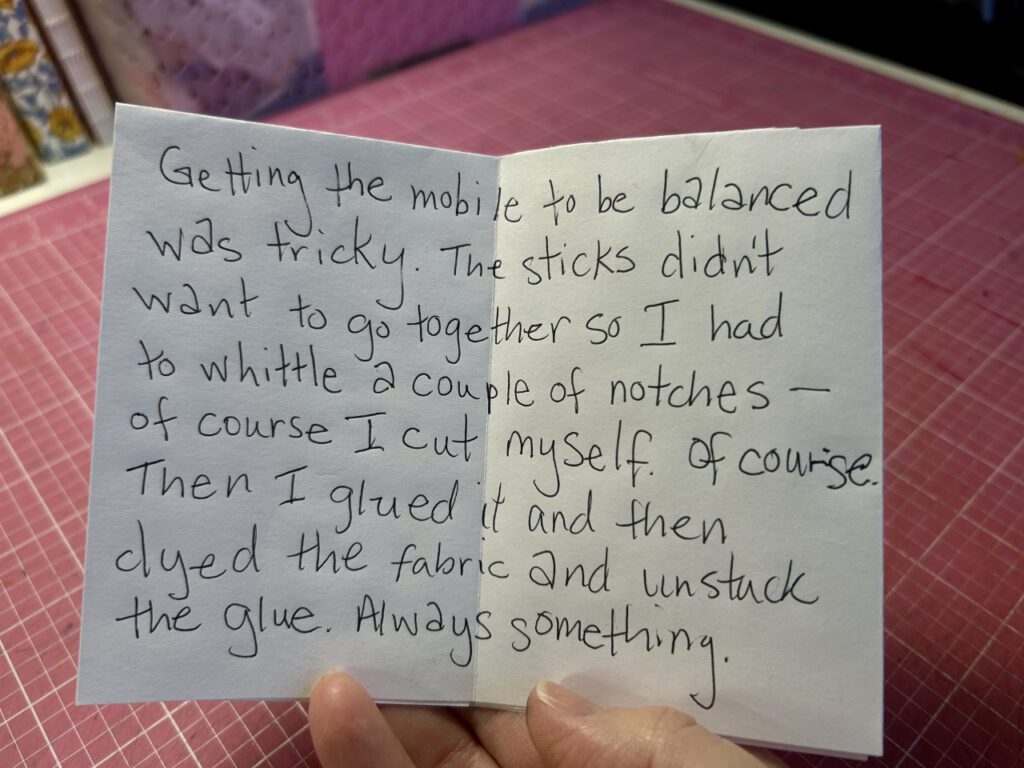 Getting the mobile to be balanced
was tricky. The sticks didn't
want to go together so I had
to whittle a couple of notches —
of course I cut myself. Of course.
Then I glued it and then
dyed the fabric and unstuck
the glue. Always something.